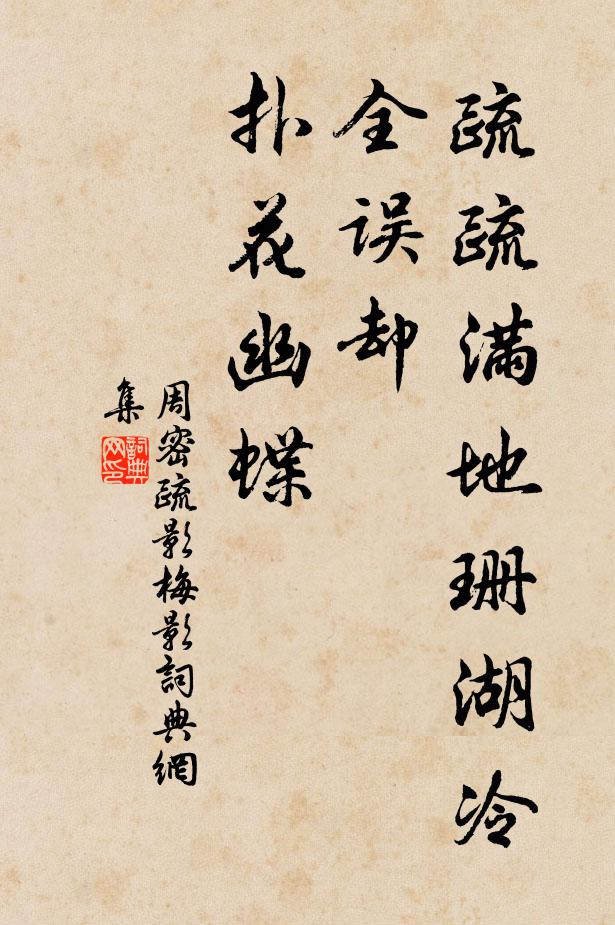 疏疏满地珊湖冷
全误却
扑花幽蝶
周密疏影梅影詞典網
集
詞典
网印